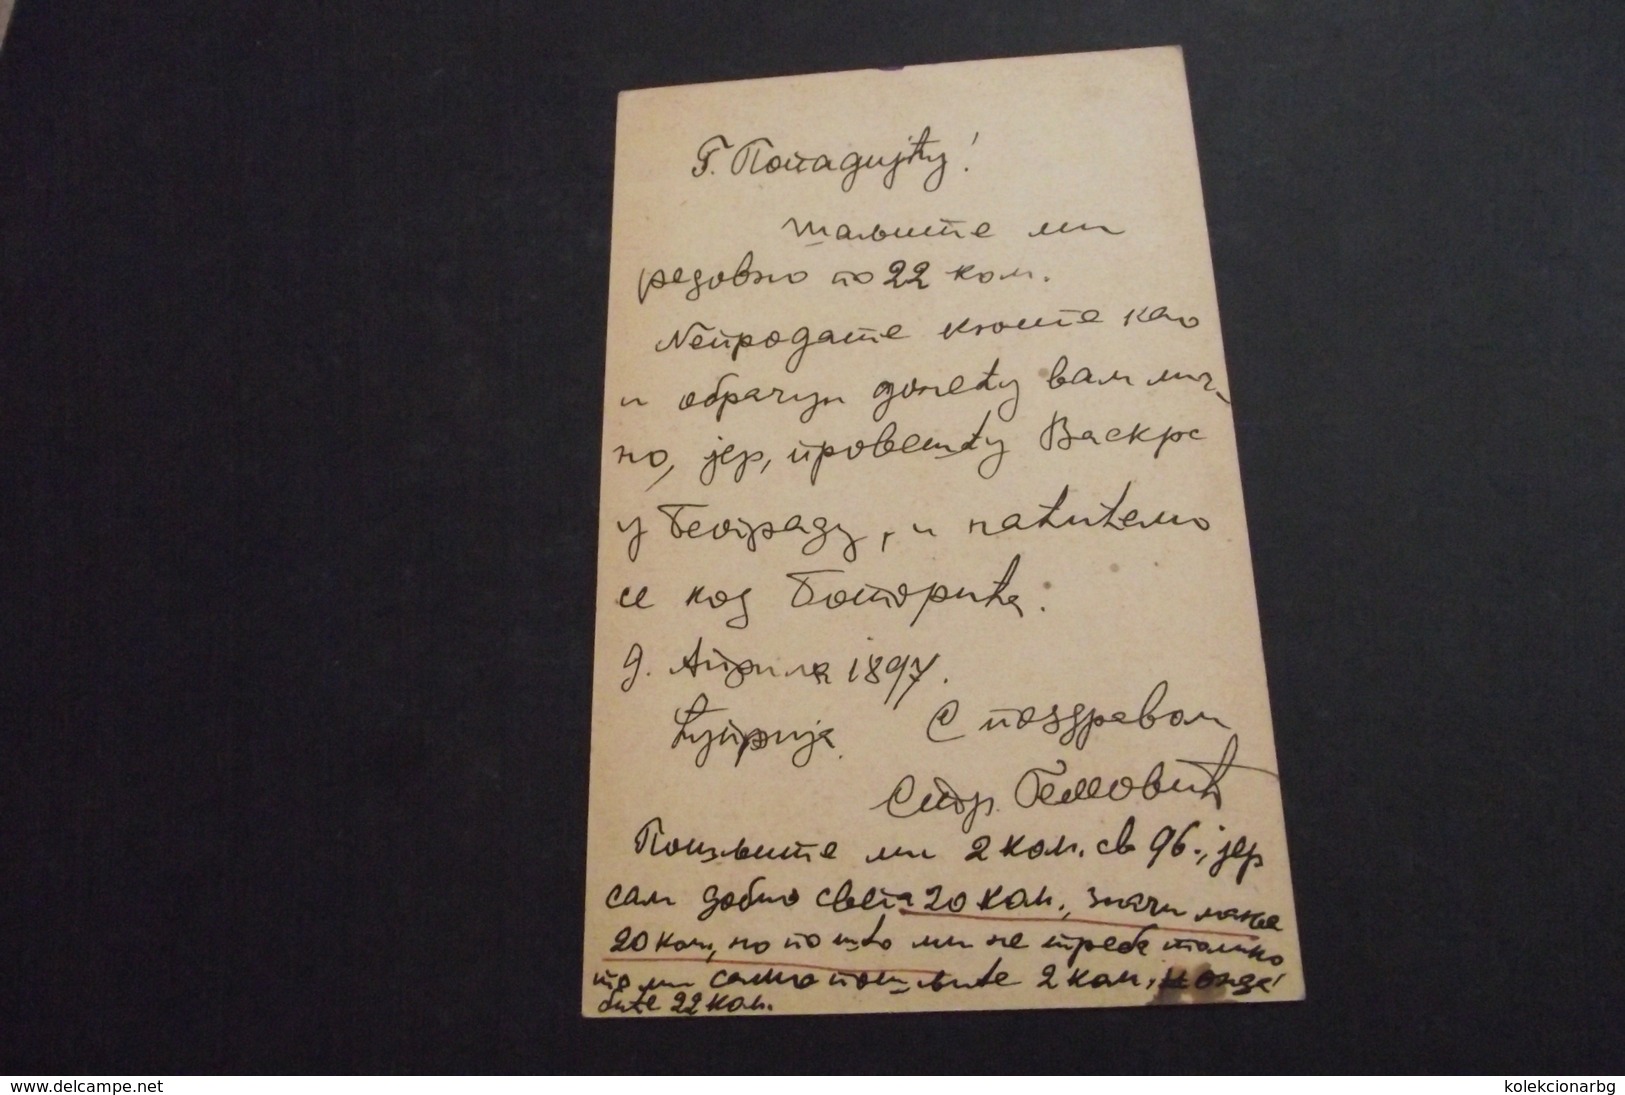 Г. Попадијћу!
Шаљите ми
редовно по 22 ком.
Непродате књиге као
и обрачун донећу вам лич-
но, јер, провешћу Васкрс
у Београду, и наћићемо
се код
9. Априла 1897.
Ћуприја. С поздравом
Пошљите ми 2 ком. св 96., јер
сам добио свега 20 ком., значи мање
20 ком, но пошто ми не треба толико
то ми само пошљите 2 ком, и онда
биће 22 ком.
www.delcampe.net
kolekcionarbg